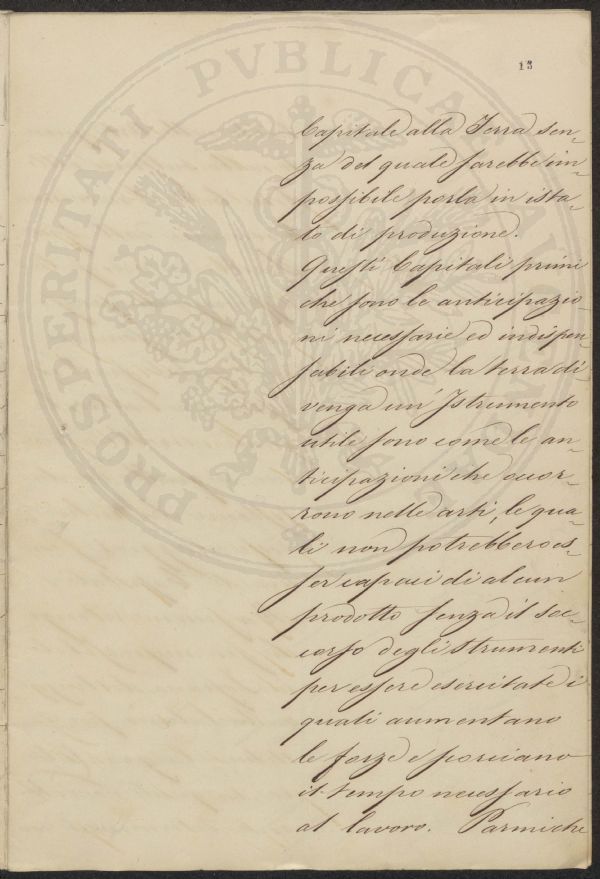 13
Capitale alla Terra sen-
za del quale sarebbe im-
possibile porla in ista-
to di produzione.
Questi Capitali primi
che sono le anticipazio-
ni necessarie ed indispen-
sabili onde la terra di-
venga un' Istrumento
utile sono come le an-
ticipazioni che ocor-
rono nelle arti, le qua-
li non potrebbero es-
ser capaci di alcun
prodotto senza il soc-
corso degli strumenti
per essere esercitate i
quali aumentano
le forze e
il tempo necessario
al lavoro. Parmi che
PROSPERITATI PVBLICAE